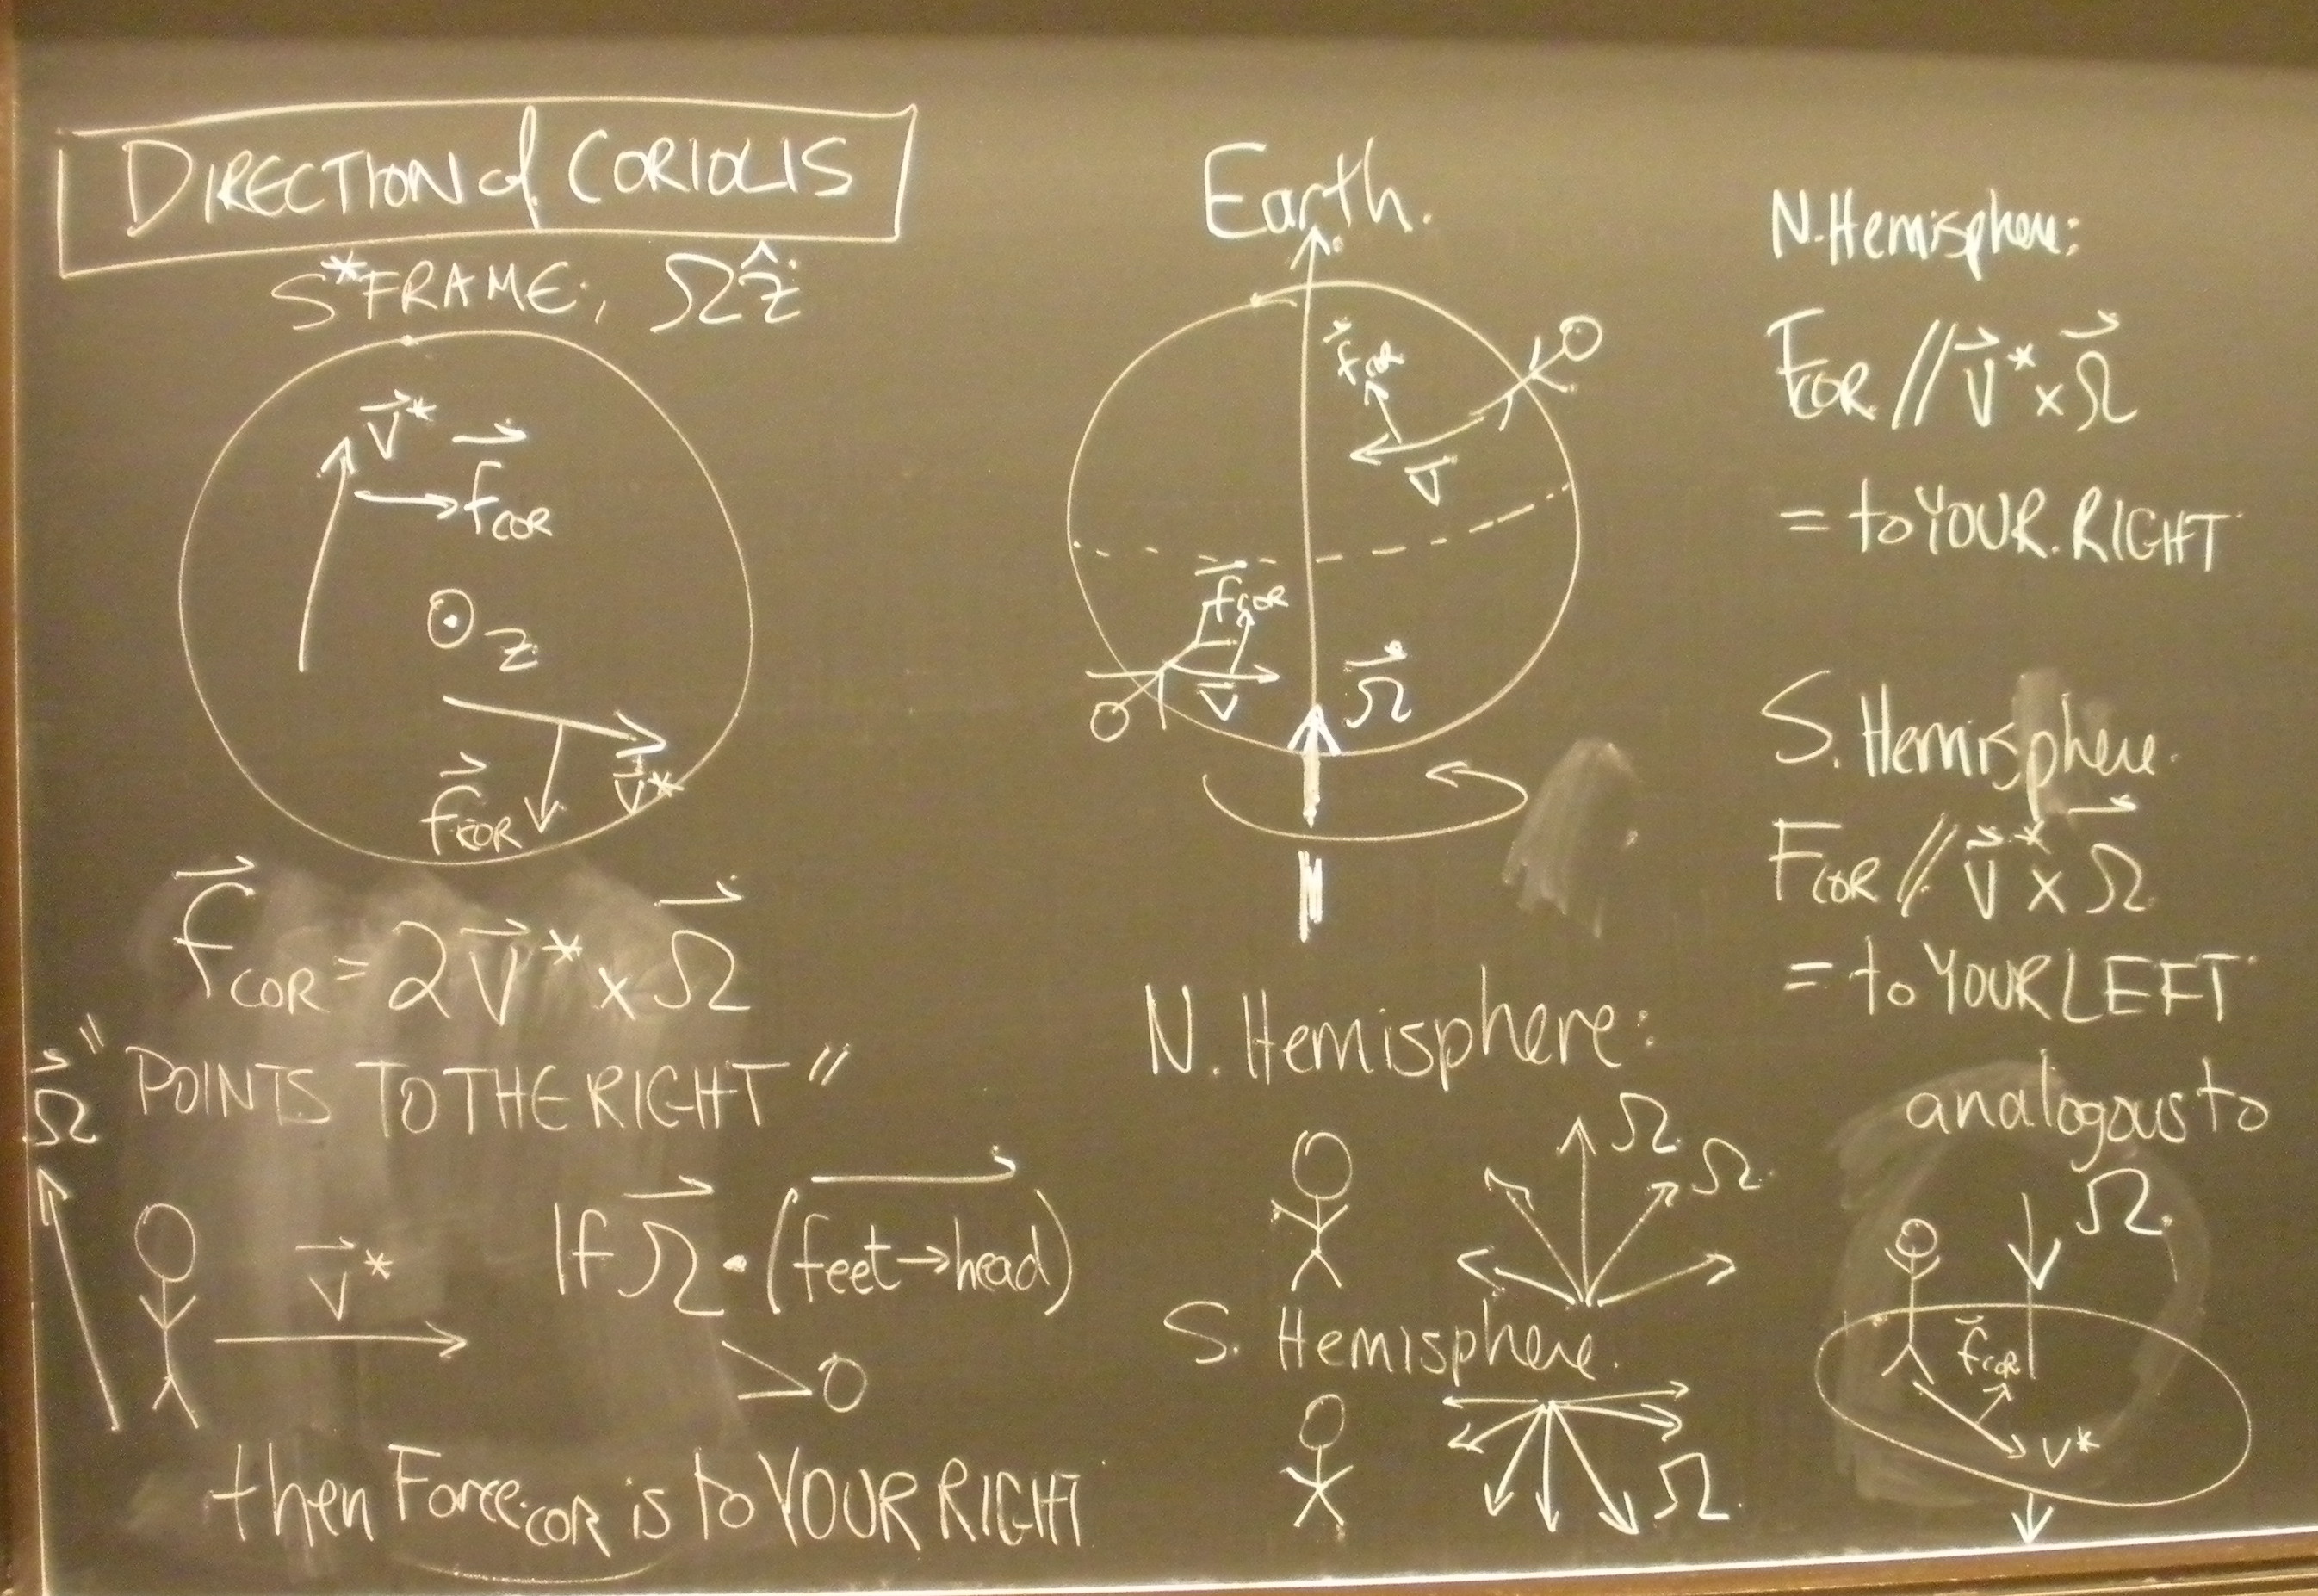 DIRECTION of CORIOLIS
S* FRAME, Ωẑ
v⃗*
f⃗COR
⊙ z
v⃗*
f⃗COR
f⃗COR = 2v⃗* × Ω⃗
"POINTS TO THE RIGHT"
Ω⃗
v⃗*
If Ω⃗ · (feet→head)
>0
then Force COR is to YOUR RIGHT
Earth.
f⃗COR
v⃗
f⃗COR
v⃗
Ω⃗
N. Hemisphere:
Ω
Ω
S. Hemisphere.
Ω
N. Hemisphere:
FCOR // v⃗* × Ω⃗
= to YOUR RIGHT
S. Hemisphere.
FCOR // v⃗* × Ω⃗
= to YOUR LEFT
analogous to
Ω
f⃗COR
v*